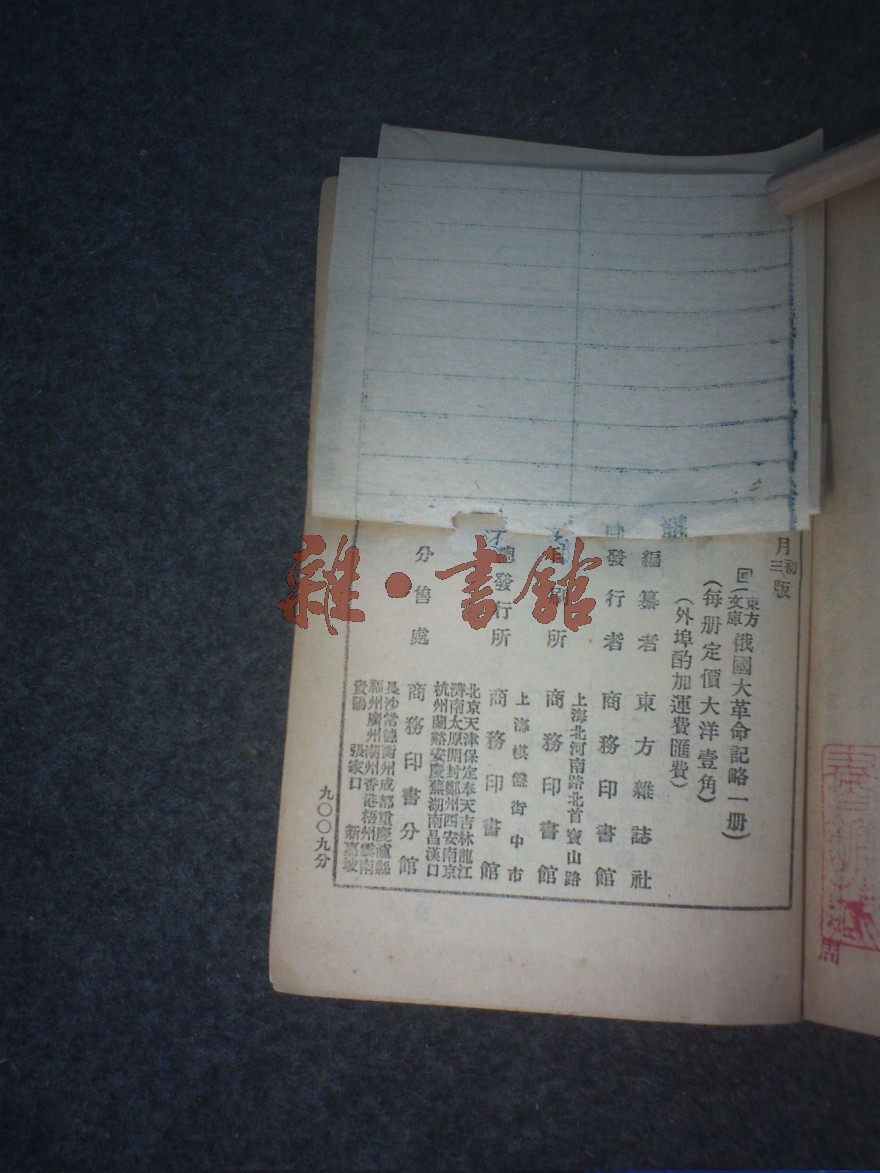 月初版
三版
東方文庫
俄國大革命記略一册)
(每册定價大洋壹角)
(外埠酌加運費匯費)
編纂者 東方雜誌社
發行者 商務印書館
上海北河南路北首寶山路
印刷所 商務印書館
上海棋盤街中市
總發行所 商務印書館
北京天津保定奉天吉林龍江
濟南太原開封鄭州西安南京
杭州蘭谿安慶蕪湖南昌漢口
分售處 商務印書分館
長沙常德衡州成都重慶瀘縣
福州廣州潮州香港梧州雲南
貴陽 張家口 新嘉坡
九〇〇九分
雜·書館